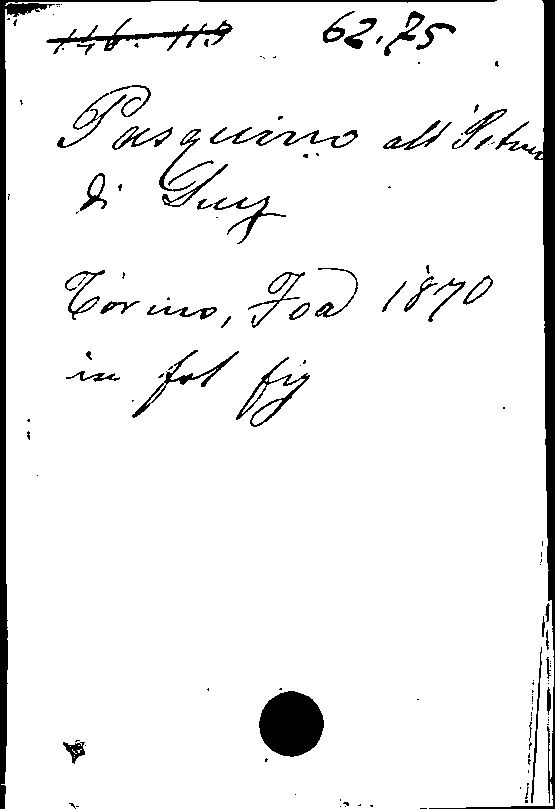 146. 113 62.75
Pasquino all'Istmo
di Suez
Torino, Foa 1870
in fol fig